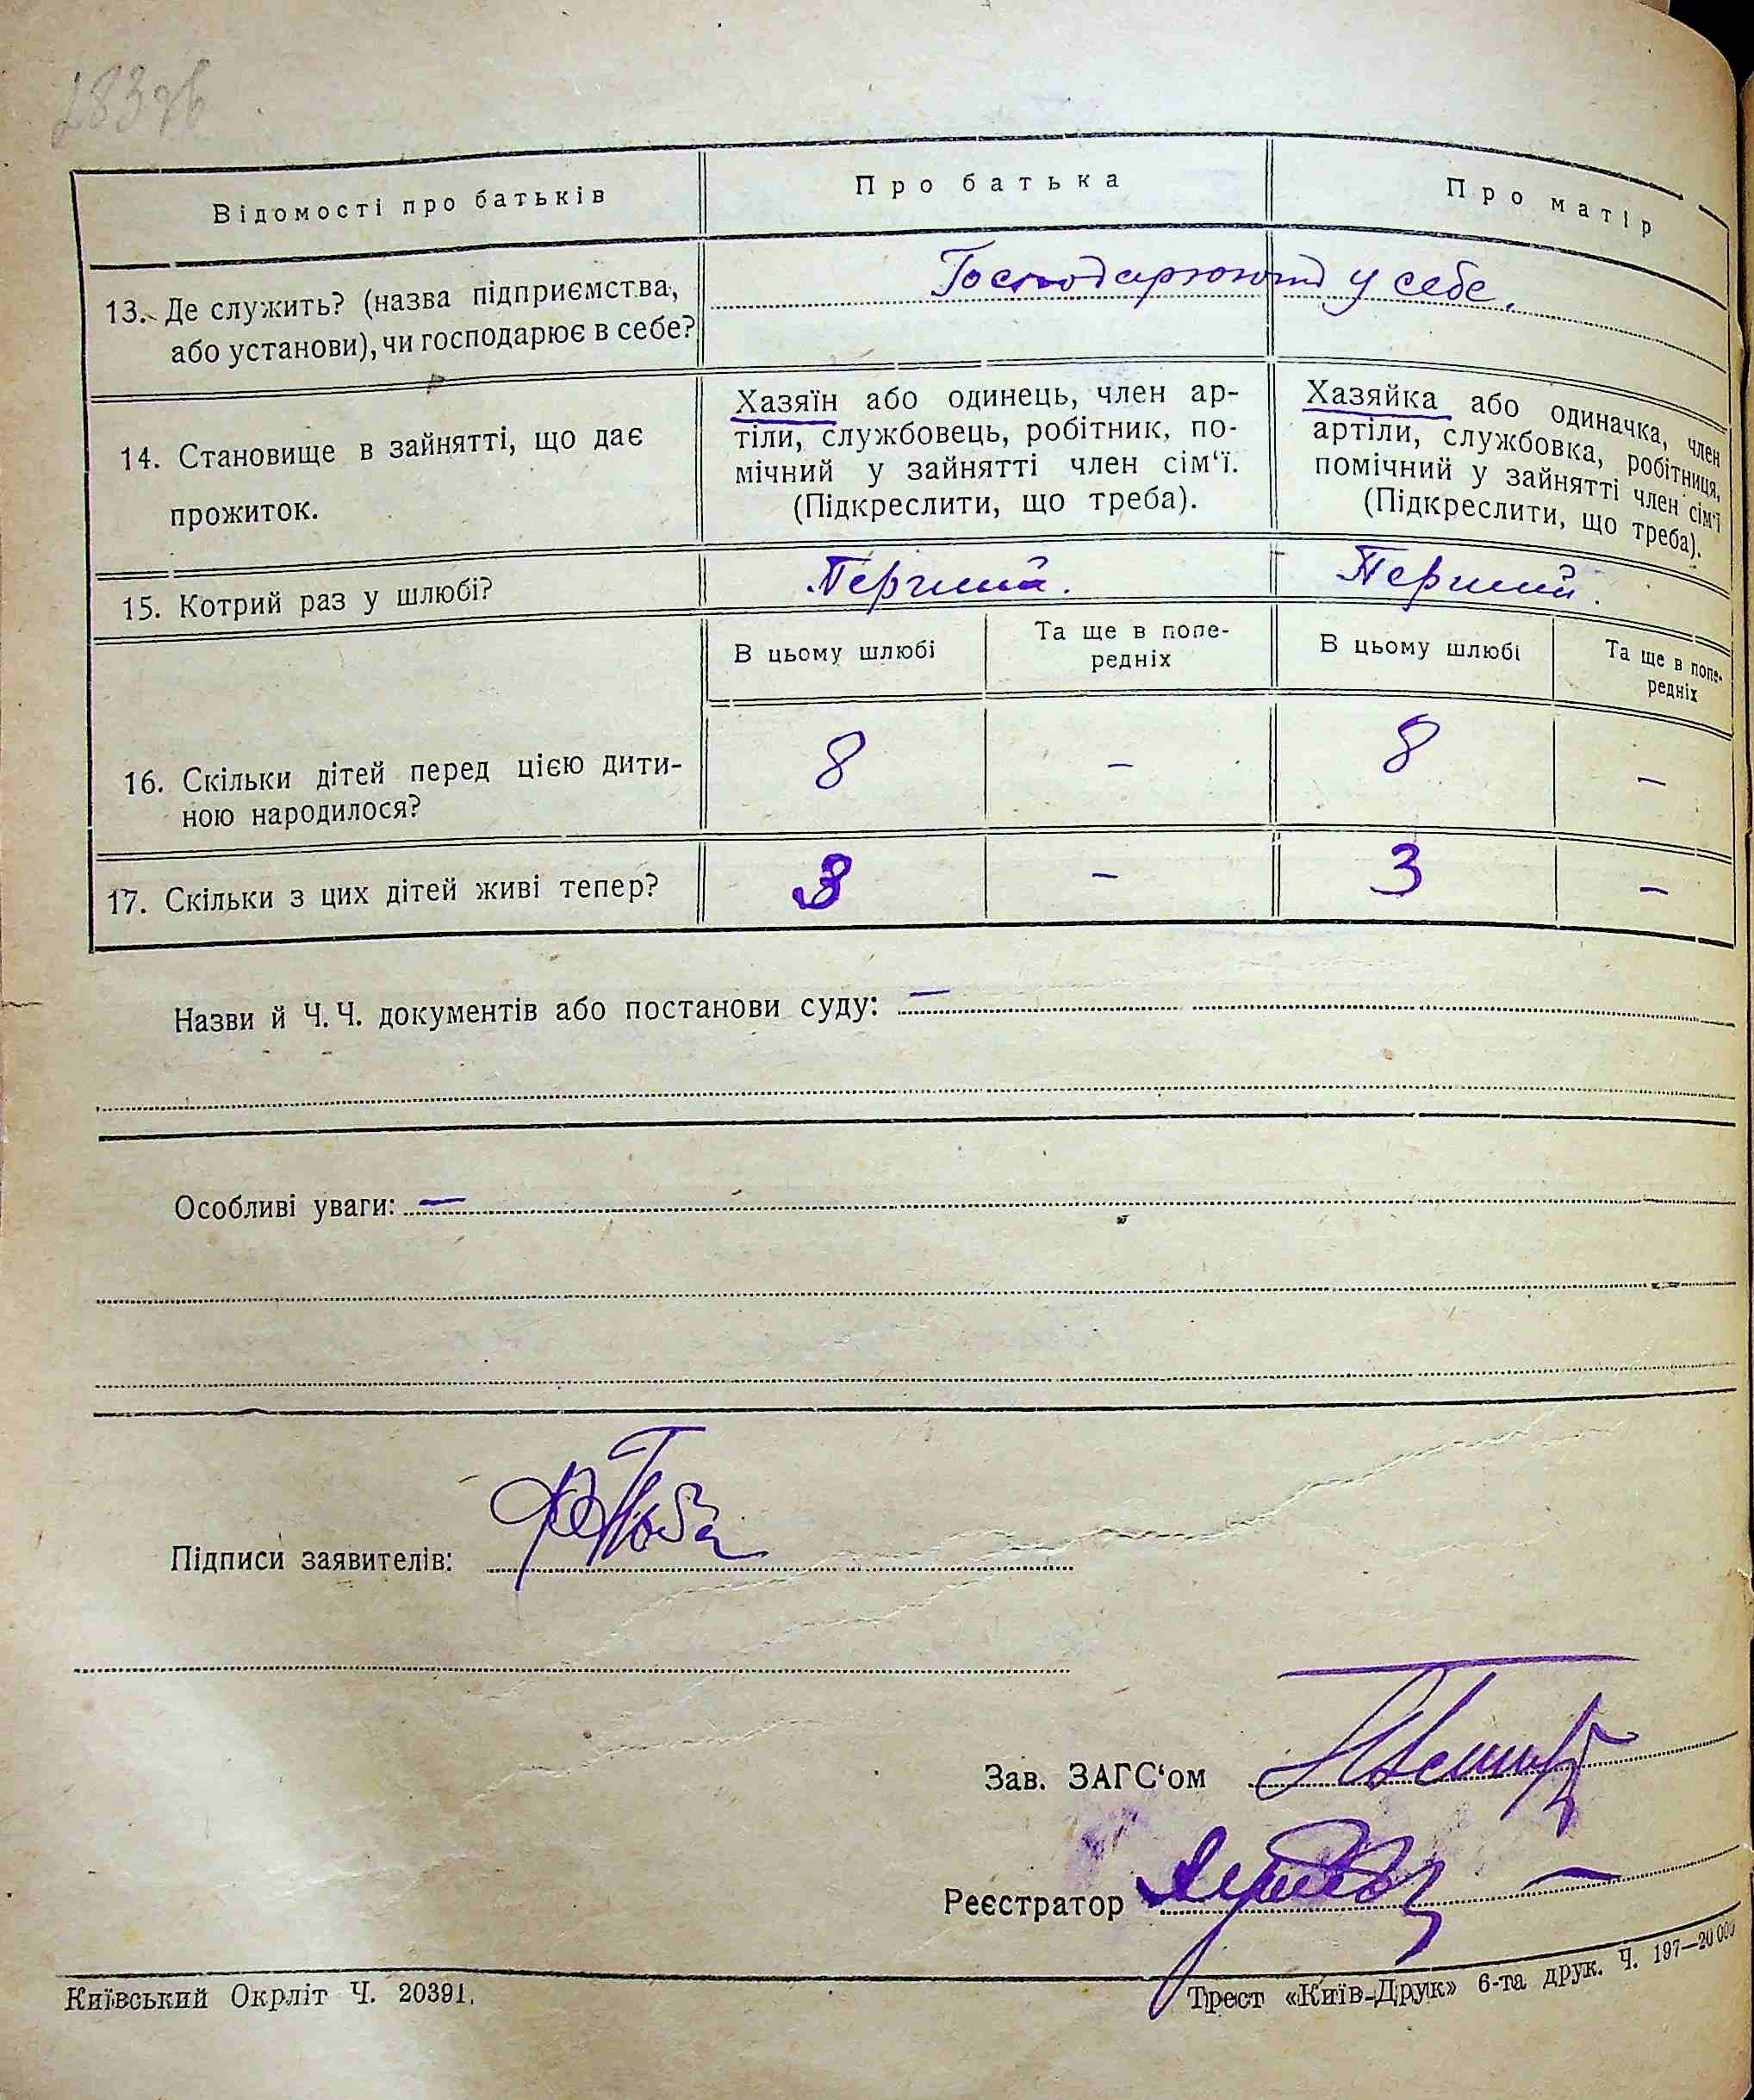 283зв
Відомості про батьків
Про батька
Про матір
13. Де служить? (назва підприємства,
або установи), чи господарює в себе?
Господарюють у себе.
14. Становище в зайнятті, що дає
прожиток.
Хазяїн або одинець, член ар-
тіли, службовець, робітник, по-
мічний у зайнятті член сім'ї.
(Підкреслити, що треба).
Хазяйка або одиначка, член
артіли, службовка, робітниця,
помічний у зайнятті член сім'ї
(Підкреслити, що треба).
15. Котрий раз у шлюбі?
Перший.
Перший.
В цьому шлюбі
Та ще в попе-
редніх
В цьому шлюбі
Та ще в попе-
редніх
16. Скільки дітей перед цією дити-
ною народилося?
8
–
8
–
17. Скільки з цих дітей живі тепер?
3
–
3
–
Назви й Ч. Ч. документів або постанови суду: –
Особливі уваги: –
Підписи заявителів:
Зав. ЗАГС'ом
Реєстратор
Київський Окрліт Ч. 20391.
Трест «Київ-Друк» 6-та друк. Ч. 197—20000